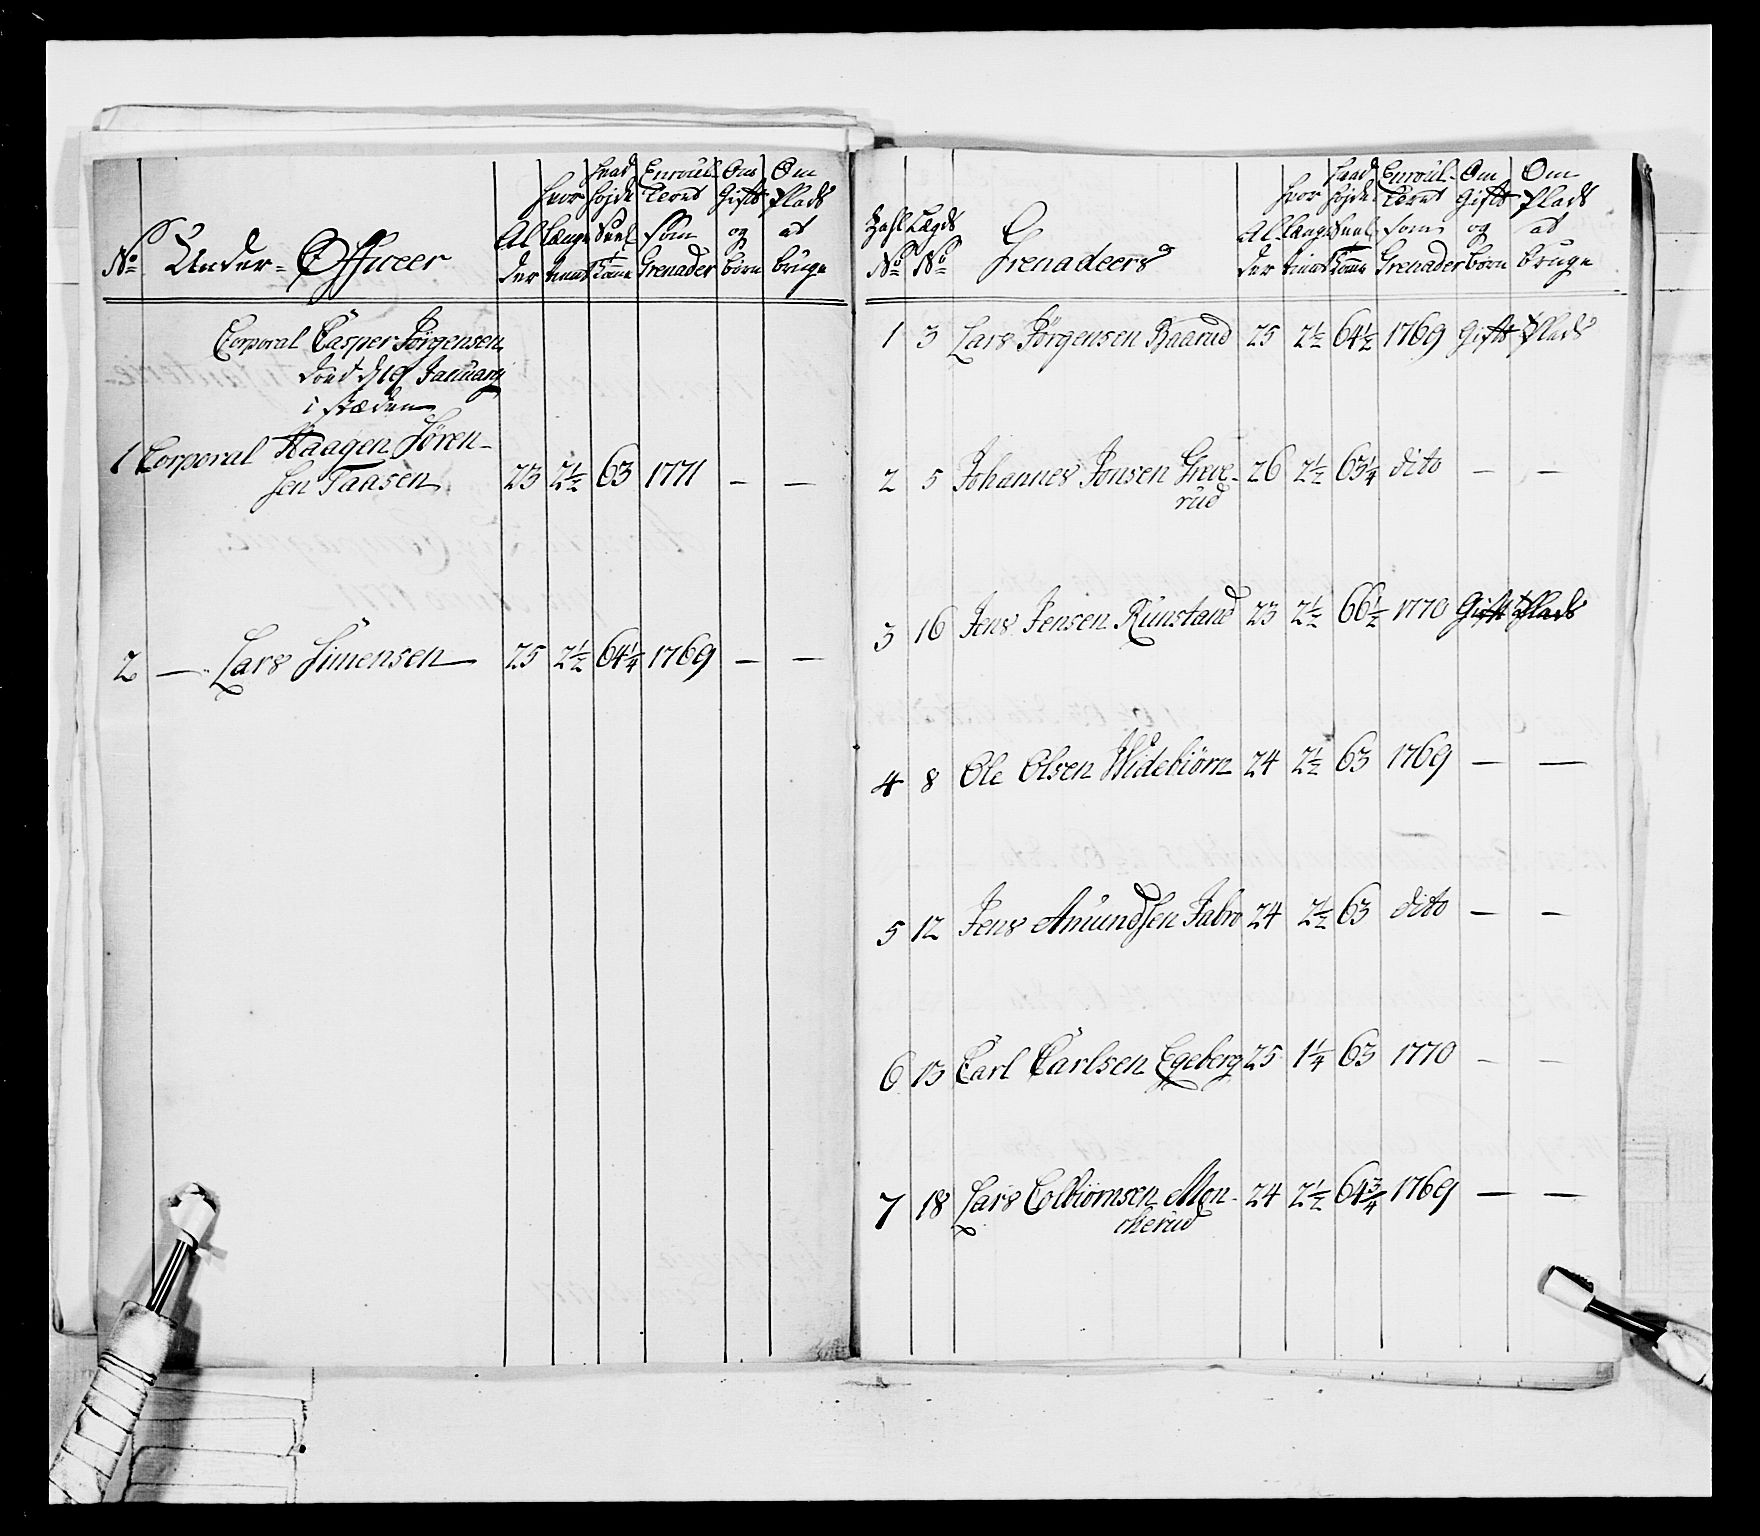 No Under-Officeer Al der hvor længe tient hvad højde Enroul leret som Grenader Om Gift og børn Om Plads at bruge
Corporal Casper Jørgensen
død d 19 January
i stæden
1 Corporal Haagen Søren-
sen Taasen 23 2½ 63 1771 — —
2 — Lars Simensen 25 2½ 64¼ 1769 — —
Zahl No Lægds No Grenadeers Al der hvor længe tient hvad højde Enroul leret som Grenader Om Gift og børn Om Plads at bruge
1 3 Lars Jørgensen Baarud 25 2½ 64½ 1769 Gift Plads
2 5 Johannes Jonsen Grue- 26 2½ 63¼ dito — —
rud
3 16 Jens Jensen Runstand 23 2½ 66½ 1770 Gift Plads
4 8 Ole Olsen Widebiørn 24 2½ 63 1769 — —
5 12 Jens Amundsen Fabro 24 2½ 63 dito — —
6 13 Carl Carlsen Egeberg 25 1¼ 63 1770 — —
7 18 Lars Colbiørnsen Mon- 24 2½ 64¾ 1769 — —
cherud